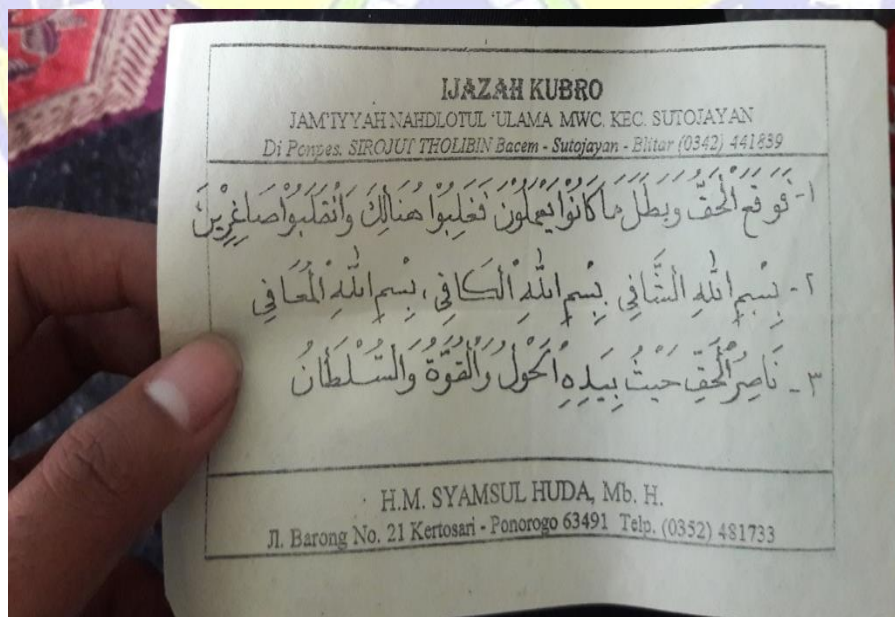 IJAZAH KUBRO
JAM'IYYAH NAHDLOTUL 'ULAMA MWC. KEC. SUTOJAYAN
Di Ponpes. SIROJUT THOLIBIN Bacem - Sutojayan - Blitar (0342) 441839
١- فَوَقَعَ الْحَقُّ وَبَطَلَ مَا كَانُوْا يَعْمَلُوْنَ فَغُلِبُوْا هُنَالِكَ وَانْقَلَبُوْا صَاغِرِيْنَ
٢- بِسْمِ اللهِ الشَّافِي بِسْمِ اللهِ الْكَافِي، بِسْمِ اللهِ الْمُعَافِي
٣- نَاصِرُ الْحَقِّ حَيْثُ بِيَدِهِ الْحَوْلُ وَالْقُوَّةُ وَالسُّلْطَانُ
H.M. SYAMSUL HUDA, Mb. H.
Jl. Barong No. 21 Kertosari - Ponorogo 63491 Telp. (0352) 481733